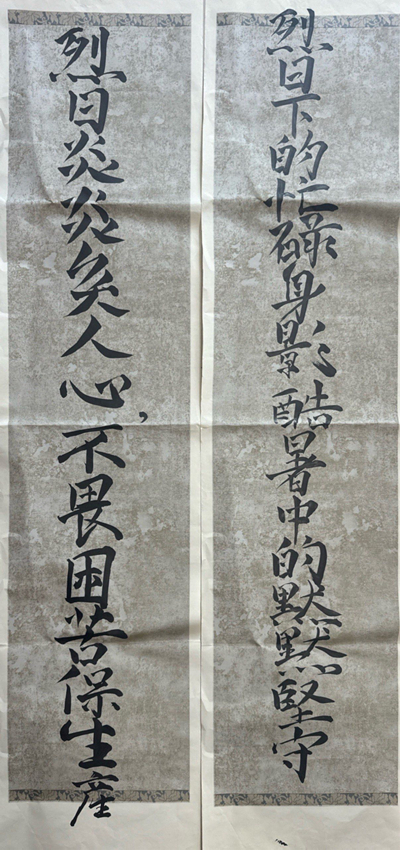 烈日下的忙碌身影酷暑中的默默堅守
烈日炎炎炙人心，不畏困苦保生産